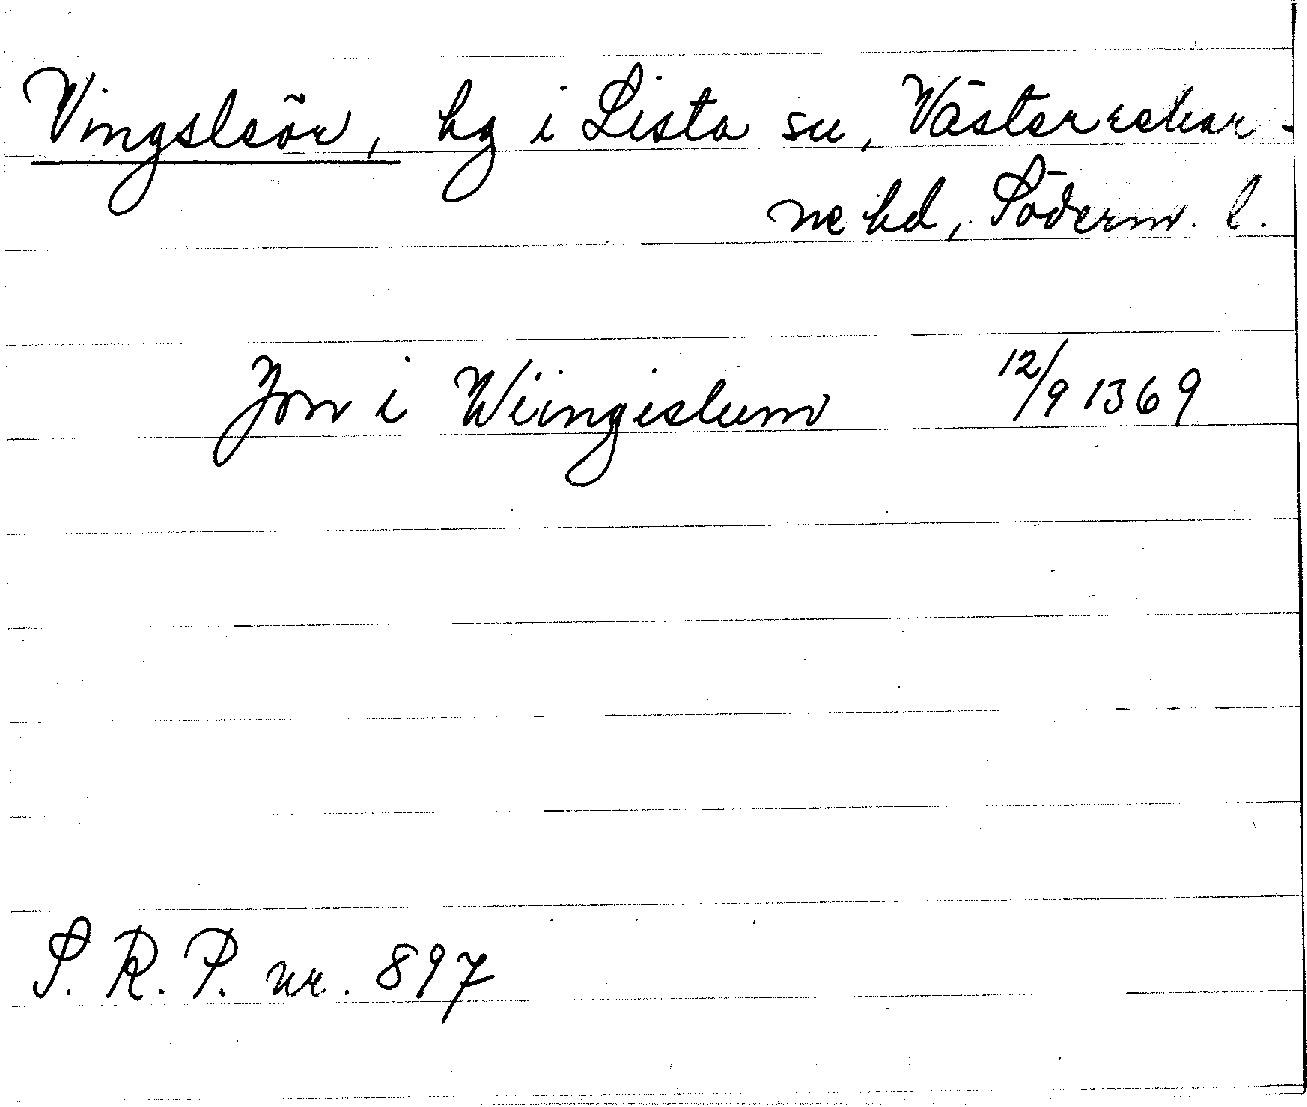 Vingsleör, hg i Lista sn, Västerrekar-
ne hd, Söderm. l.
Jon i Wiingislum 12/9 1369
S. R. P. nr. 897